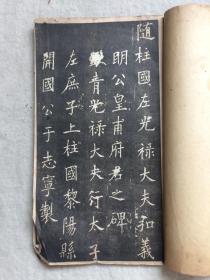 隨柱國左光祿大夫弘義
明公皇甫府君之碑
銀青光祿大夫行太子
左庶子上柱國黎陽縣
開國公于志寧製